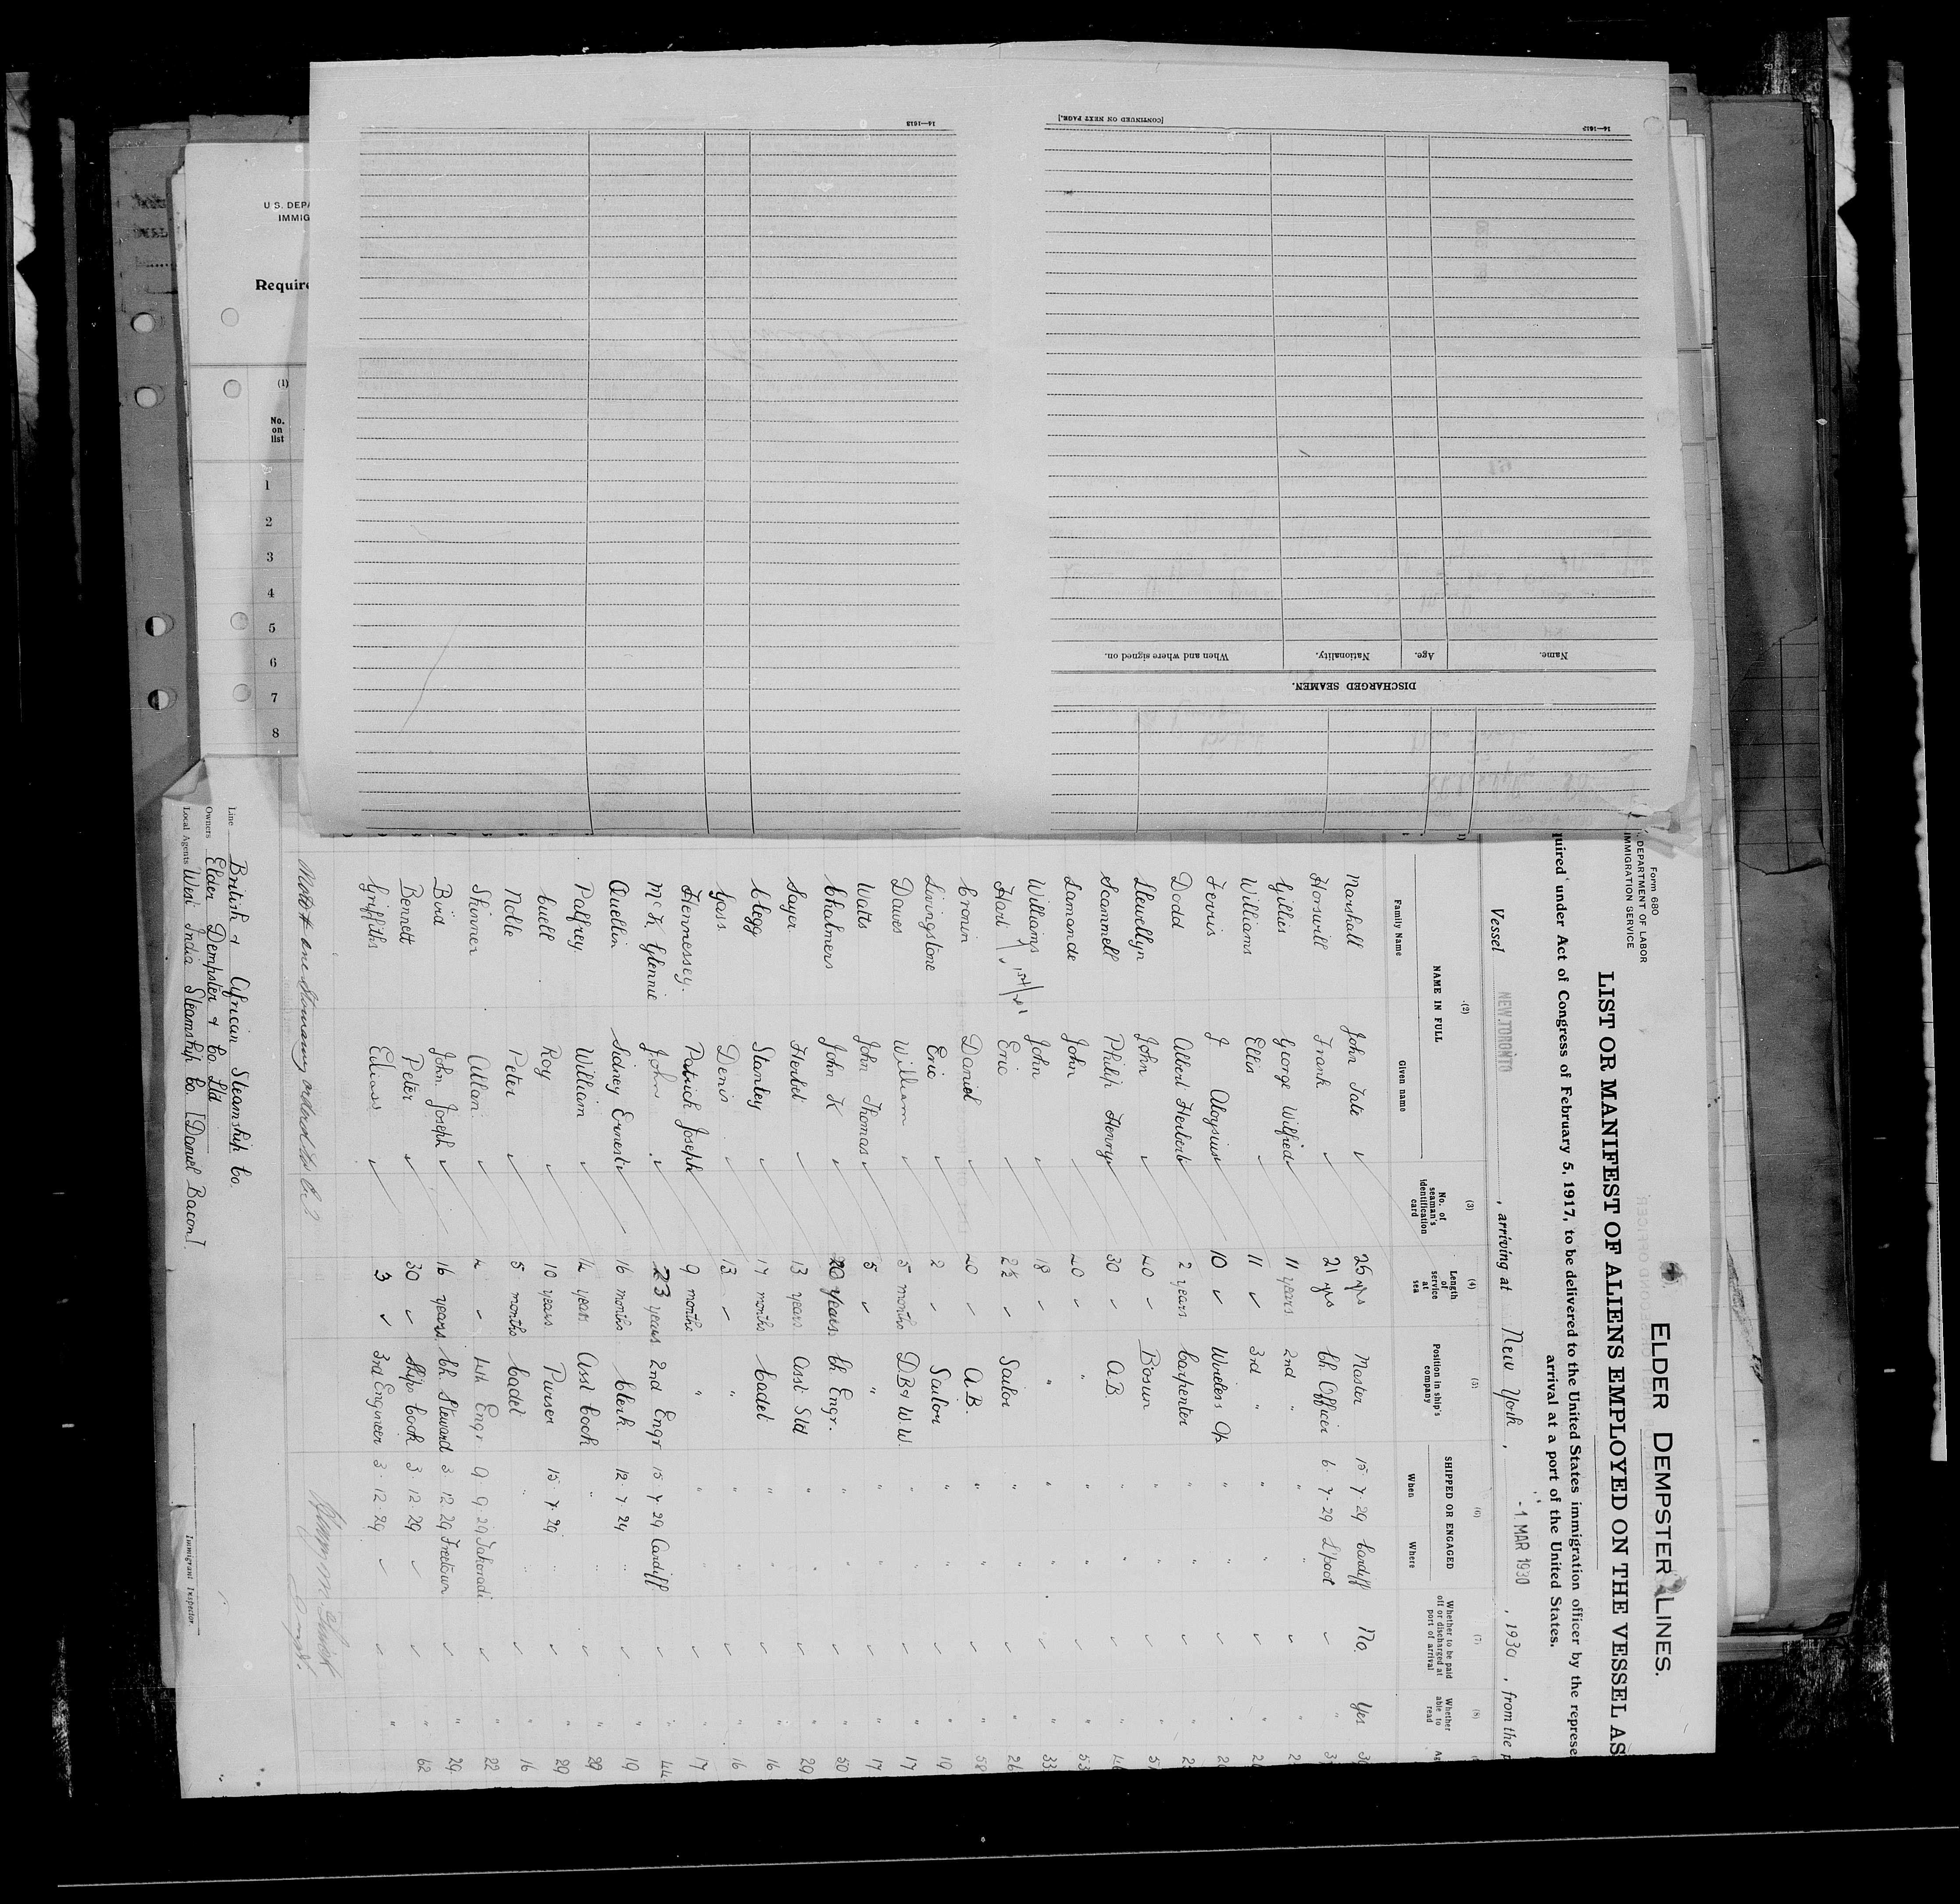 U S. DEPA
IMMIG
Require
(1)
No.
on
list
1
2
3
4
5
6
7
8
14—1613
[CONTINUED ON NEXT PAGE.]
14—1613
Name.
Age.
Nationality.
When and where signed on.
DISCHARGED SEAMEN.
Form 680
DEPARTMENT OF LABOR
IMMIGRATION SERVICE
ELDER DEMPSTER LINES.
LIST OR MANIFEST OF ALIENS EMPLOYED ON THE VESSEL AS
uired under Act of Congress of February 5, 1917, to be delivered to the United States immigration officer by the represe
arrival at a port of the United States.
Vessel NEW TORONTO , arriving at New York , -1 MAR 1930 , 1930 , from the p
(2) (3) (4) (5) (6) (7) (8)
NAME IN FULL
Family Name Given name
No. of seaman's identification card
Length of service at sea
Position in ship's company
SHIPPED OR ENGAGED
When Where
Whether to be paid off or discharged at port of arrival
Whether able to read
Marshall John Tate ✓ 25 yrs Master 15 7 29 Cardiff No. Yes
Horswill Frank ✓ 21 yrs Ch Officer 6 7 29 L'pool ✓ "
Gillies George Wilfred ✓ 11 years 2nd " " " ✓ "
Williams Ellis ✓ 11 ✓ 3rd " " " ✓ "
Ferris J Aloysius ✓ 10 ✓ Wireless Op " " ✓ "
Dodd Albert Herbert ✓ 2 years Carpenter " " ✓ "
Llewellyn John ✓ 40 ✓ Bosun " " ✓ "
Scammell Philip Henry ✓ 30 ✓ A.B. " " ✓ "
Lamande John ✓ 40 ✓ " " " ✓ "
Williams John ✓ 18 ✓ " " " ✓ "
Hart Eric ✓ 2½ ✓ Sailor " " ✓ " 26
Cronin Daniel ✓ 40 ✓ A.B. " " ✓ " 58
Livingstone Eric ✓ 2 ✓ Sailor " " ✓ " 19
Dawes William ✓ 5 months D.B & W.W. " " ✓ " 17
Watts John Thomas ✓ 5 ✓ " " " ✓ " 17
Chalmers John K ✓ 20 years Ch. Engr. " " ✓ " 50
Sayer Herbert ✓ 13 years Asst Std " " ✓ " 29
Clegg Stanley ✓ 17 months Cadet " " ✓ " 16
Gass Denis ✓ 13 ✓ " " " ✓ " 16
Hennessey. Patrick Joseph ✓ 9 months " " " ✓ " 17
McK Glennie John ✓ 23 years 2nd Engr 15 7 29 Cardiff ✓ " 44
Quellin Sidney Ernest ✓ 16 months Clerk 12 7 29 " ✓ " 19
Palfrey William ✓ 14 years Asst Cook " " ✓ " 29
Cuell Roy ✓ 10 years Purser 15 7 29 " ✓ " 29
Noble Peter ✓ 5 months Cadet " " ✓ " 16
Skinner Allan ✓ 4 ✓ 4th Engr 9 9 29 Takoradi ✓ " 22
Bird John Joseph ✓ 16 years Ch. Steward 3 12 29 Freetown ✓ " 29
Bennett Peter ✓ 30 ✓ Ships Cook 3 12 29 ✓ ✓ " 62
Griffiths Elias ✓ 3 ✓ 3rd Engineer 3 12 29 ✓ ✓ "
Line British & African Steamship Co.
Owners Elder Dempster & Co. Ltd
Local Agents West India Steamship Co. [Daniel Bacon].
Immigrant Inspector.